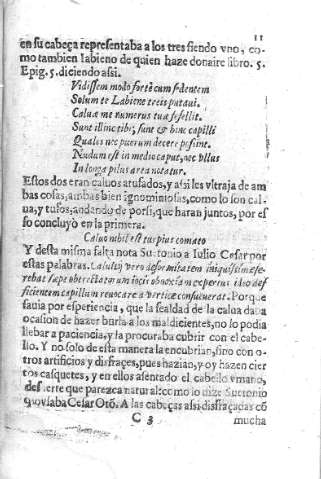 11
en su cabeça representaba a los tres siendo vno, co-
mo tambien labieno de quien haze donaire libro. 5.
Epig. 5. diciendo assi.
Vidissem modo fortè cum sedentem
Solum te Labiene treis putaui.
Caluæ me numerus tuæ fefellit.
Sunt illinc tibi, sunt & hinc capilli
Quales nec puerum decere possint.
Nudum est in medio caput, nec vllus
In longa pilus area notatur.
Estos dos eran caluos atufados, y assi les vltraja de am
bas cosas, ambas bien ignominiosas, como lo son cal
ua, y tufos, andando de porsi, que haran juntos, por es
so concluyò en la primera.
Caluo nihil est turpius comato
Y desta misma falta nota Suetonio a Iulio Cesar por
estas palabras. Caluitij vero deformitatem iniquissime fe-
rebat sæpe obtrectatorum iocis obnoxiam expertus ideo def
ficientem capillum reuocare à vertice consueuerat. Porque
sauia por esperiencia, que la fealdad de la calua daba
ocasion de hazer burla a los maldicientes, no lo podia
llebar a paciencia, y la procuraba cubrir con el cabe-
llo. Y no solo de esta manera la encubrian, sino con o-
tros artificios y disfraçes, pues hazian, y oy hazen cier
tos casquetes, y en ellos asentado el cabello vmano,
de suerte que parezca natural: como lo dize Suetonio
q̃ lo vsaba Cesar Otõ. A las cabeças assi disfraçadas cõ
C 3
mucha